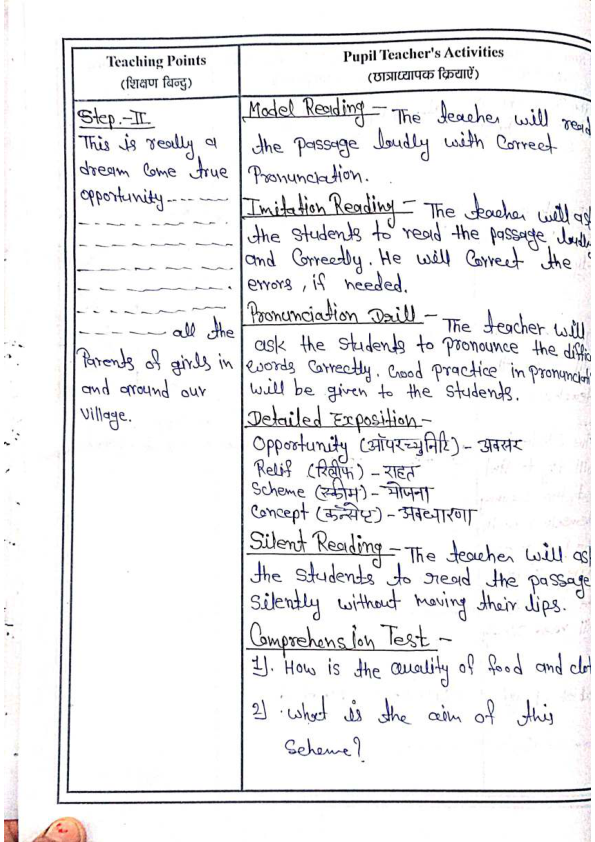 Teaching Points
(शिक्षण बिन्दु)
Step.-II
This is really a
dream come true
opportunity
all the
Parents of girls in
and around our
village.
Pupil Teacher's Activities
(छात्राध्यापक क्रियाएँ)
Model Reading - The teacher will read
the passage loudly with Correct
Pronunciation.
Imitation Reading - The teacher will
the students to read the passage
and Correctly. He will Correct the
errors, if needed.
Pronunciation Drill - The teacher will
ask the students to pronounce the
words Correctly. Good practice in
will be given to the students.
Detailed Exposition -
Opportunity (ऑपरच्युनिटि) - अवसर
Relif (रिलीफ) - राहत
Scheme (स्कीम) - योजना
Concept (कन्सेप्ट) - अवधारणा
Silent Reading - The teacher will
the students to read the passage
Silently without moving their lips.
Comprehension Test -
1). How is the quality of food and
2) what is the aim of this
Scheme?